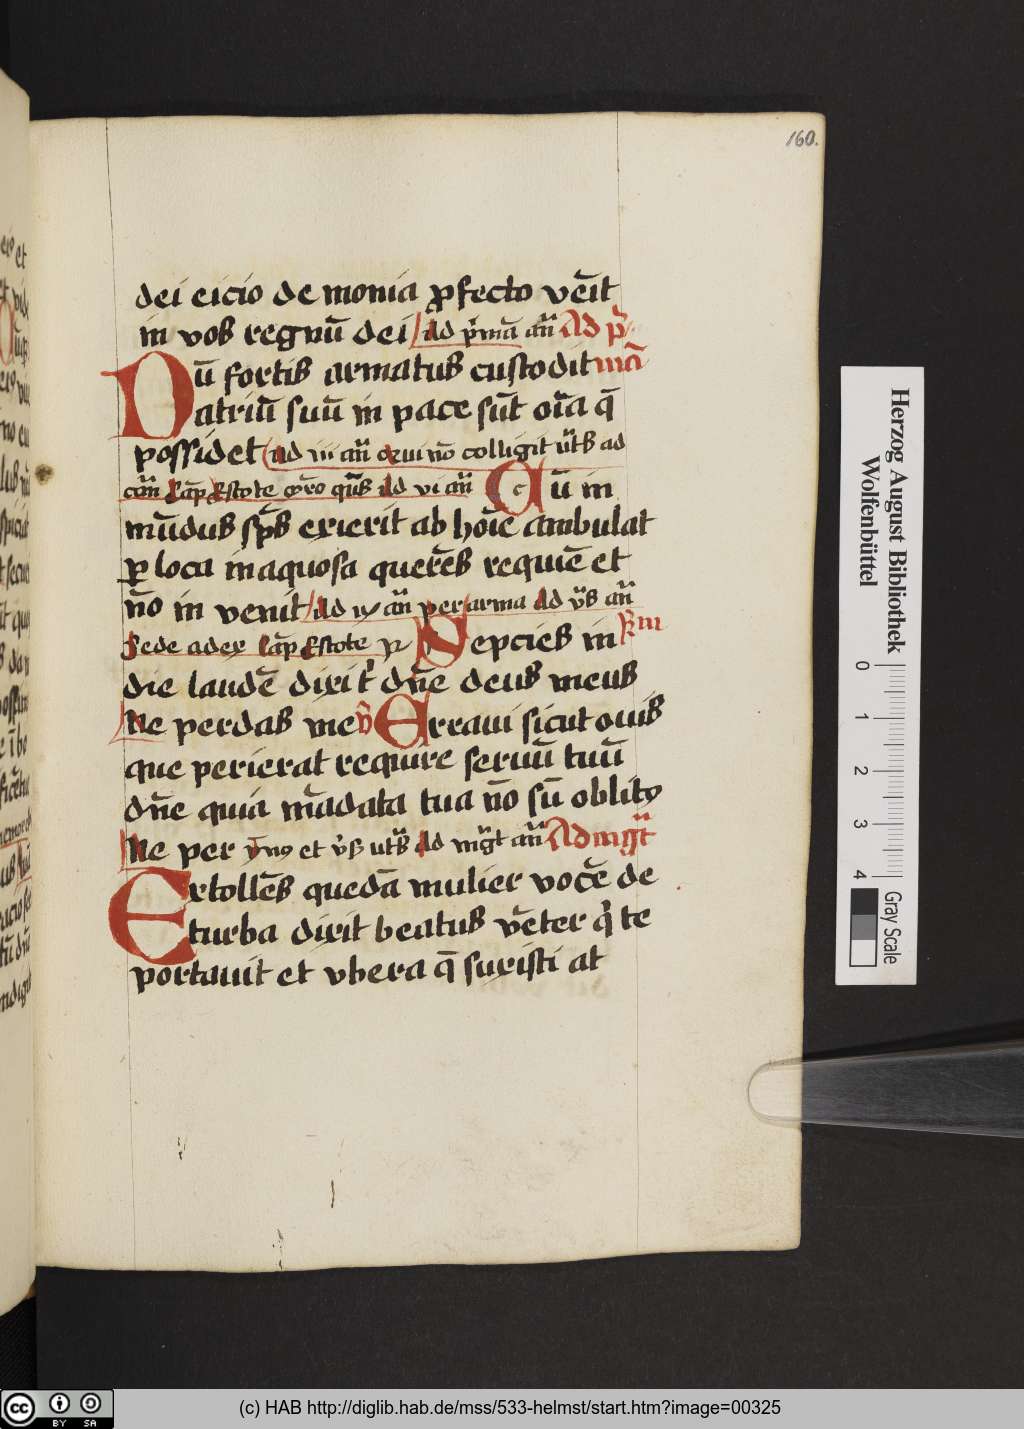 160.
dei eicio demonia ꝓfecto vēit
in vos regnū dei ad p̄mā añ Ad p̄
Dū fortis armatus custodit mā
atriū suū in pace sūt oīa q̄
possidet ad iii añ q̄ui nō colligit ut̄s ad
cōm Cap̄ Estote Ad vi añ Cū in
mūdus sp̄s exierit ab hoīe ambulat
ꝑ loca inaquosa querēs requiē et
nō in venit Ad ix añ per arma Ad v̄s añ
Sede a dex Cap̄ Estote Sepcies in
die laudē dixit dn̄e deus meus
Ne perdas me v̄ Erraui sicut ouis
que perierat require seruū tuū
dn̄e quia mādata tua nō sū oblitꝯ
Ne per ym̄ꝯ et v̄s ut̄s Ad mḡt añ Ad mḡt
Extollēs quedā mulier vocē de
turba dixit beatus vēter q̄ te
portauit et vbera q̄ suxisti at
Herzog August Bibliothek
Wolfenbüttel
0 1 2 3 4
Gray Scale
cc BY SA
(c) HAB http://diglib.hab.de/mss/533-helmst/start.htm?image=00325